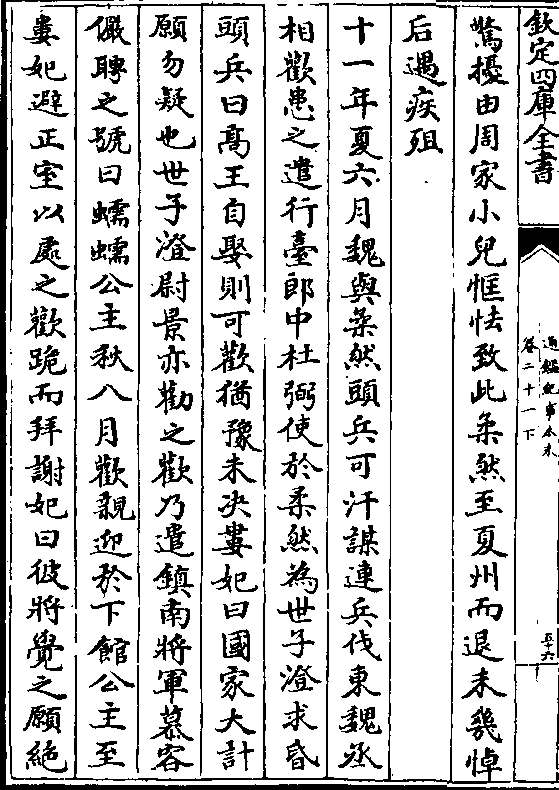 欽定四庫全書
通鑑紀事本末
卷二十一下
五十六
驚擾由周家小兒恇怯致此柔然至夏州而退未幾悼
后遇疾殂
十一年夏六月魏與柔然頭兵可汗謀連兵伐東魏丞
相歡患之遣行臺郎中杜弼使於柔然為世子澄求昏
頭兵曰髙王自娶則可歡猶豫未决婁妃曰國家大計
願勿疑也世子澄尉景亦勸之歡乃遣鎮南將軍慕容
儼聘之號曰蠕蠕公主秋八月歡親迎於下館公主至
婁妃避正室以處之歡跪而拜謝妃曰彼將覺之願絶